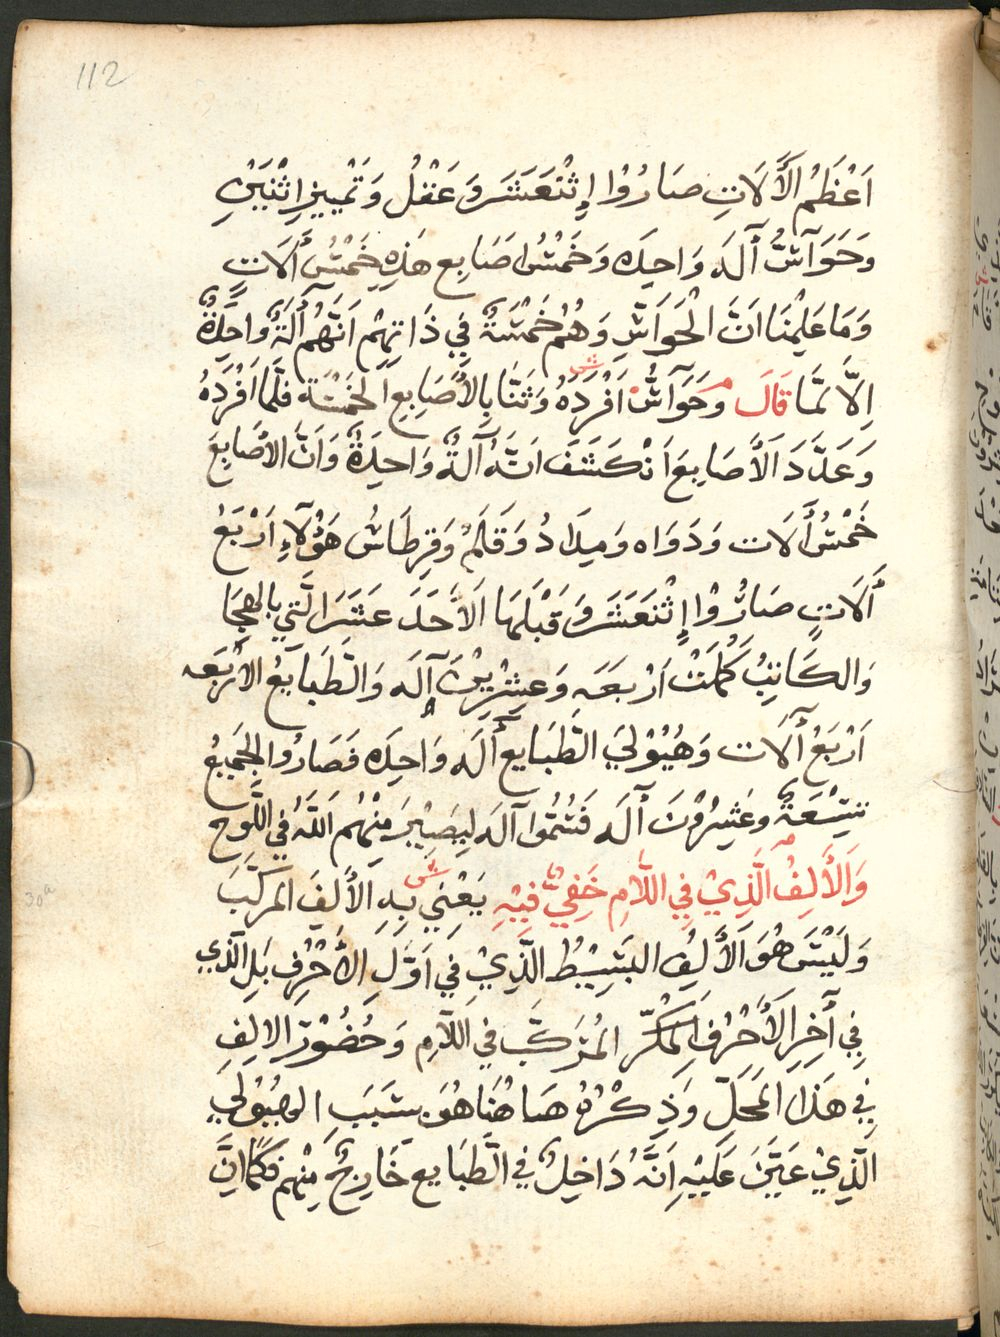 112
اَعْظَمُ الْأَلَاتِ صَارُوْا إِثْنَعَشَرَ وَعَقْلُ وَتَمْيِيزِ اِثْنَيْنِ
وَحَوَآسُّ آلَه وَاحِدَه وَخَمْسُ اصَابِع هَذِهِ خَمْسُ أَلَاتٍ
وَمَا عَلِمْنَا انَّ الْحَوَاسِّ وَهُمْ خَمْسَةٌ فِي ذَاتِهِمْ اَنَّهُمْ آلَةٌ وَاحِدَةٌ
اِلَّا لَمَّا قَالَ وَحَوَآسُّ شر اَفْرَدَهُ وَثَنَّا بِالْأَصَابِعِ الخَمْسَة فَلَمَّا اَفْرَدَهُ
وَعَدَّدَ الْأَصَابِعَ اَنْكَشَفَ انَّهُ آلَةٌ وَاحِدَةٌ وَاَنَّ الأَصَابِعَ
خَمْسُ أَلَات وَدَوَاه وَمِدَادُ وَقَلَمُ وَقِرطَاسُ هَؤُلَاءِ اَرْبَعُ
أَلَاتٍ صَارُوْا إِثْنَعَشَرَ وَقَبْلَهَا الْأَحَدَ عَشَرَ الَّتِي بالهِجَا
وَالكَاتِبُ كَمُلَتْ اَرْبَعَه وَعِشْرِيْنَ آلَه وَالطَّبَايَعُ الأرْبَعه
اَرْبَعُ أَلَات وَهُيُوْلَي الطَّبَايع أَلَه وَاحِدَه فَصَارُوا الجَمِيعُ
تِسْعَةٌ وعِشرُوْنَ آلَه فَتُمِّمُوا آلَه لِيَصِيْرَ مِنْهُم اَللَّهُ فِي اللَّوحِ
وَالْأَلِفُ الَّذِيْ فِي اللَّامِ خَفِيٌّ فِيْهِ شر يَعْنِي بِهِ الْأَلِفَ المركَّبَ
وَلَيْسَ هُوَ الْأَلِفُ البَسِيْطُ الَّذِيْ فِي اَوَّلِ الأَحْرُفِ بَلِ الَّذِي
فِي آخِرِ الأَحْرُفِ المكَرَّر المُرَكَّبِ فِي اللَّامِ وَحُضُوْرَ الالِفِ
فِي هَذَا المَحَلِّ وَذِكْرُهُ هَاهُنَا هُوَ بسَبَبِ الهيُوْلِي
الَّذِيْ عَيَّنَ عَلَيْهِ اَنَّهُ دَاخِلٌ فِي الطَّبَايع خَارِجٌ مِنْهم فكَمَا انَّ
30a